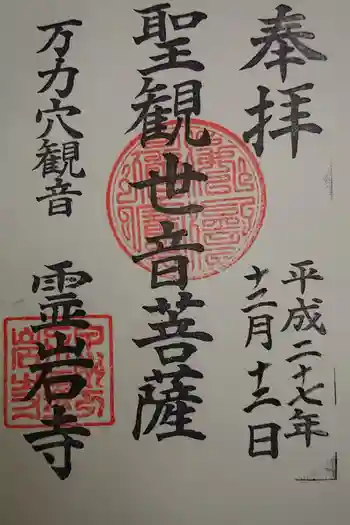 奉拝
平成二十七年
十二月十二日
聖観世音菩薩
万力穴観音
霊岩寺